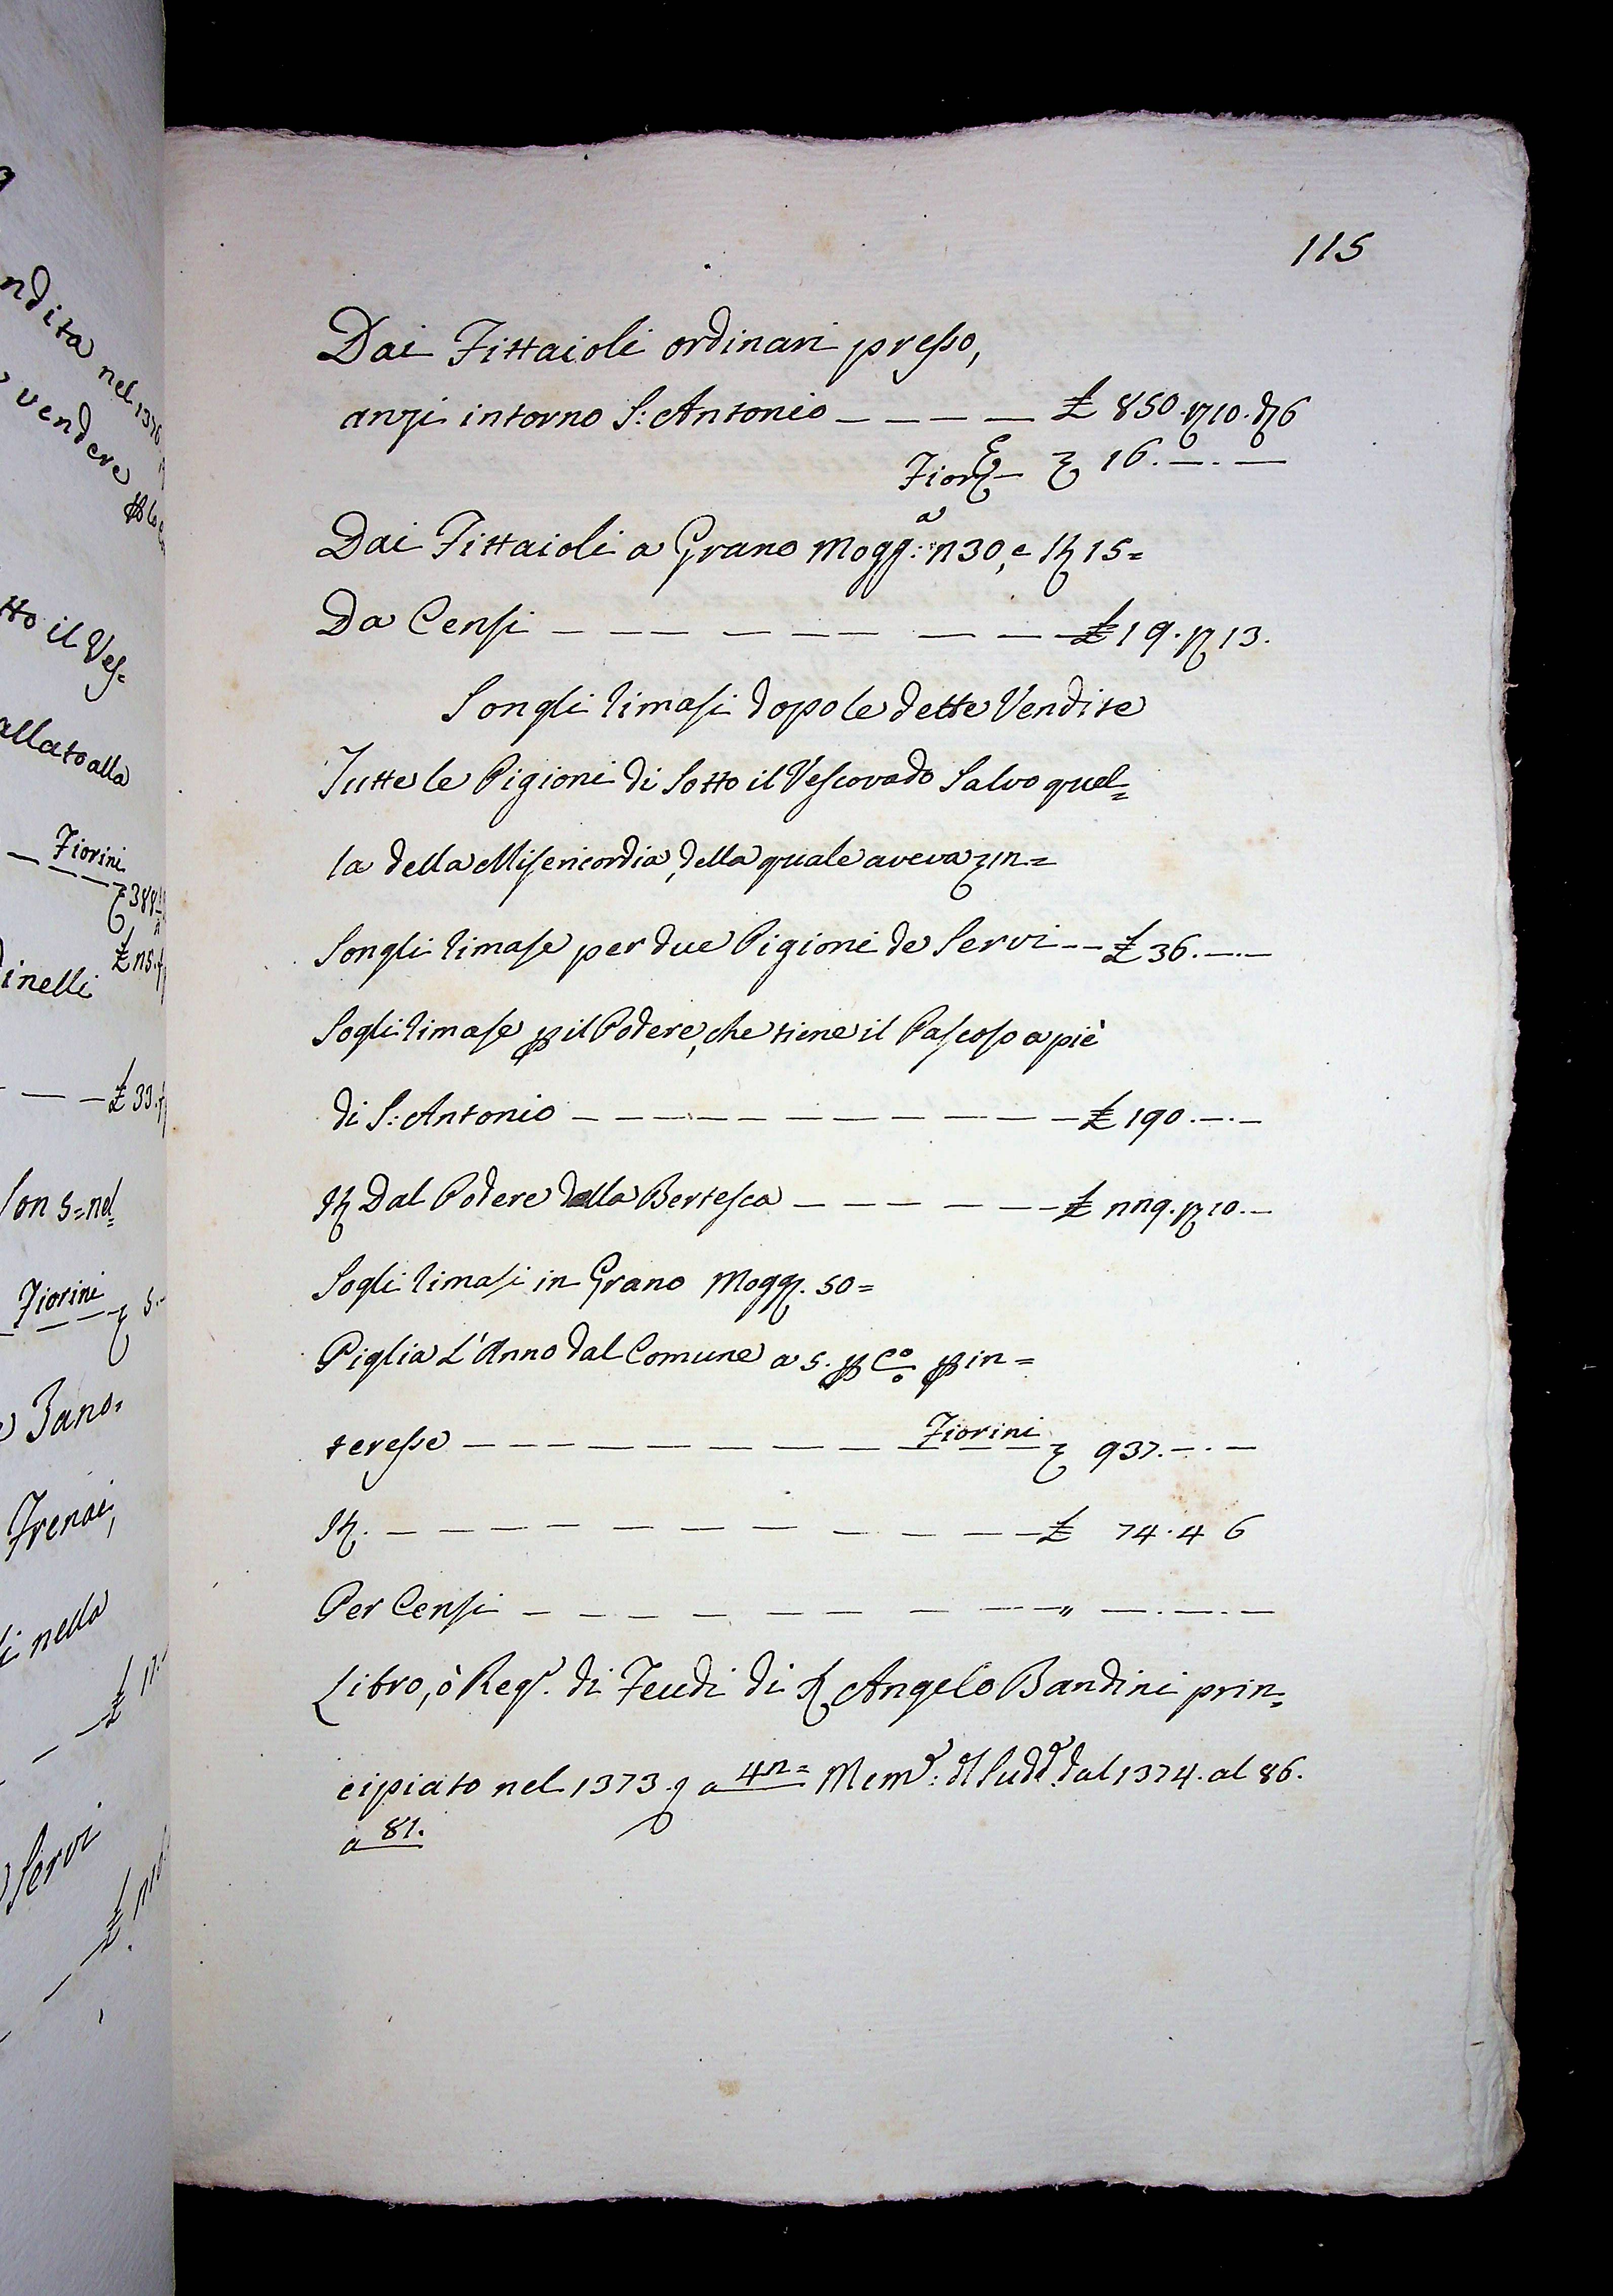 115
Dai Fittaioli ordinari presso,
anzi intorno S: Antonio — — — — £ 850. 10. 6
Fior — 16. —. —
Dai Fittaioli a Grano Mogg:a n 30, e 15=
Da Censi — — — — — — — — £ 19. 13.
Songli rimasi dopo le dette Vendite
Tutte le Pigioni di Sotto il Vescovado Salvo quel=
la della Misericordia, della quale aveva 1n=
Songli rimase per due Pigioni de Servi — — £ 36. —.—
Sogli rimase p il Podere, che tiene il Pascoso a piè
di S: Antonio — — — — — — — — — £ 190. —.—
It Dal Podere della Bertesca — — — — — £ nn9. 10. —
Sogli rimasi in Grano Mogg. 50=
Piglia L'Anno dal Comune a 5. p Co p in=
teresse — — — — — — — Fiorini — 937. —. —
It. — — — — — — — — — — £ 74. 4 6
Per Censi — — — — — — — — — " —.—.—
Libro, ò Regr. di Feudi di Angelo Bandini prin=
cipiato nel 1373. a 4n= Memr: dl Sudd. dal 1374. al 86.
a 81.
ndita nel 1370
vendere
tto il Ves=
allato alla
Fiorini
— — — 388
£ n5.
inelli
— — — £ 33.
on 5=nel=
Fiorini
— — — 5. —
Zano=
Frenai,
i nella
— — £
Servi
— — £